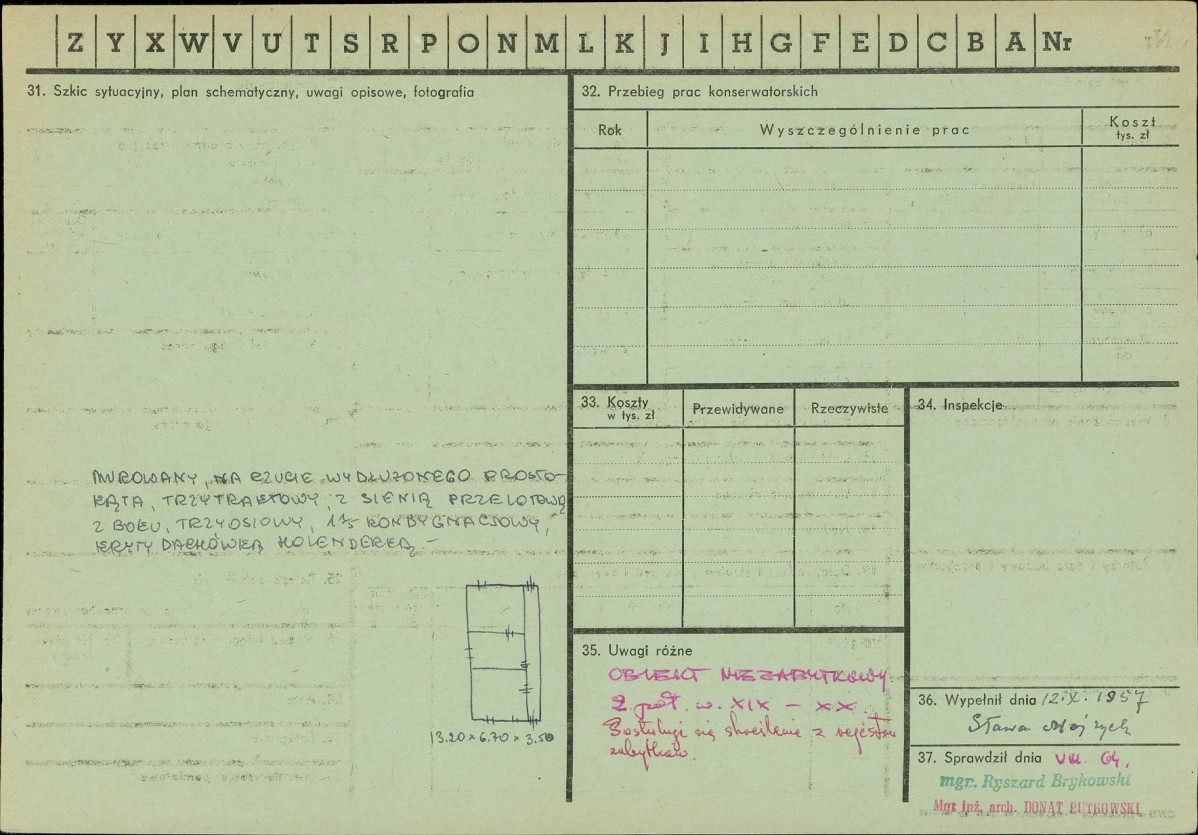 Z Y X W V U T S R P O N M L K J I H G F E D C B A Nr
31. Szkic sytuacyjny, plan schematyczny, uwagi opisowe, fotografia
MUROWANY, NA RZUCIE WYDŁUŻONEGO PROSTO-
KĄTA, TRZYTRAKTOWY, Z SIENIĄ PRZELOTOWĄ
Z BOKU, TRZYOSIOWY, 1½ KONDYGNACJOWY,
KRYTY DACHÓWKĄ HOLENDERKĄ. –
13.20 × 6.70 × 3.50
32. Przebieg prac konserwatorskich
Rok
Wyszczególnienie prac
Koszt
tys. zł
33. Koszty
w tys. zł
Przewidywane
Rzeczywiste
34. Inspekcje
35. Uwagi różne
OBIEKT NIEZABYTKOWY
2. poł. w. XIX – XX.
Postuluje się skreślenie z rejestru
zabytków.
36. Wypełnił dnia 12.X.1957
Sława
37. Sprawdził dnia VIII. 64.
mgr. Ryszard Brykowski
Mgr inż. arch. DONAT RUTKOWSKI